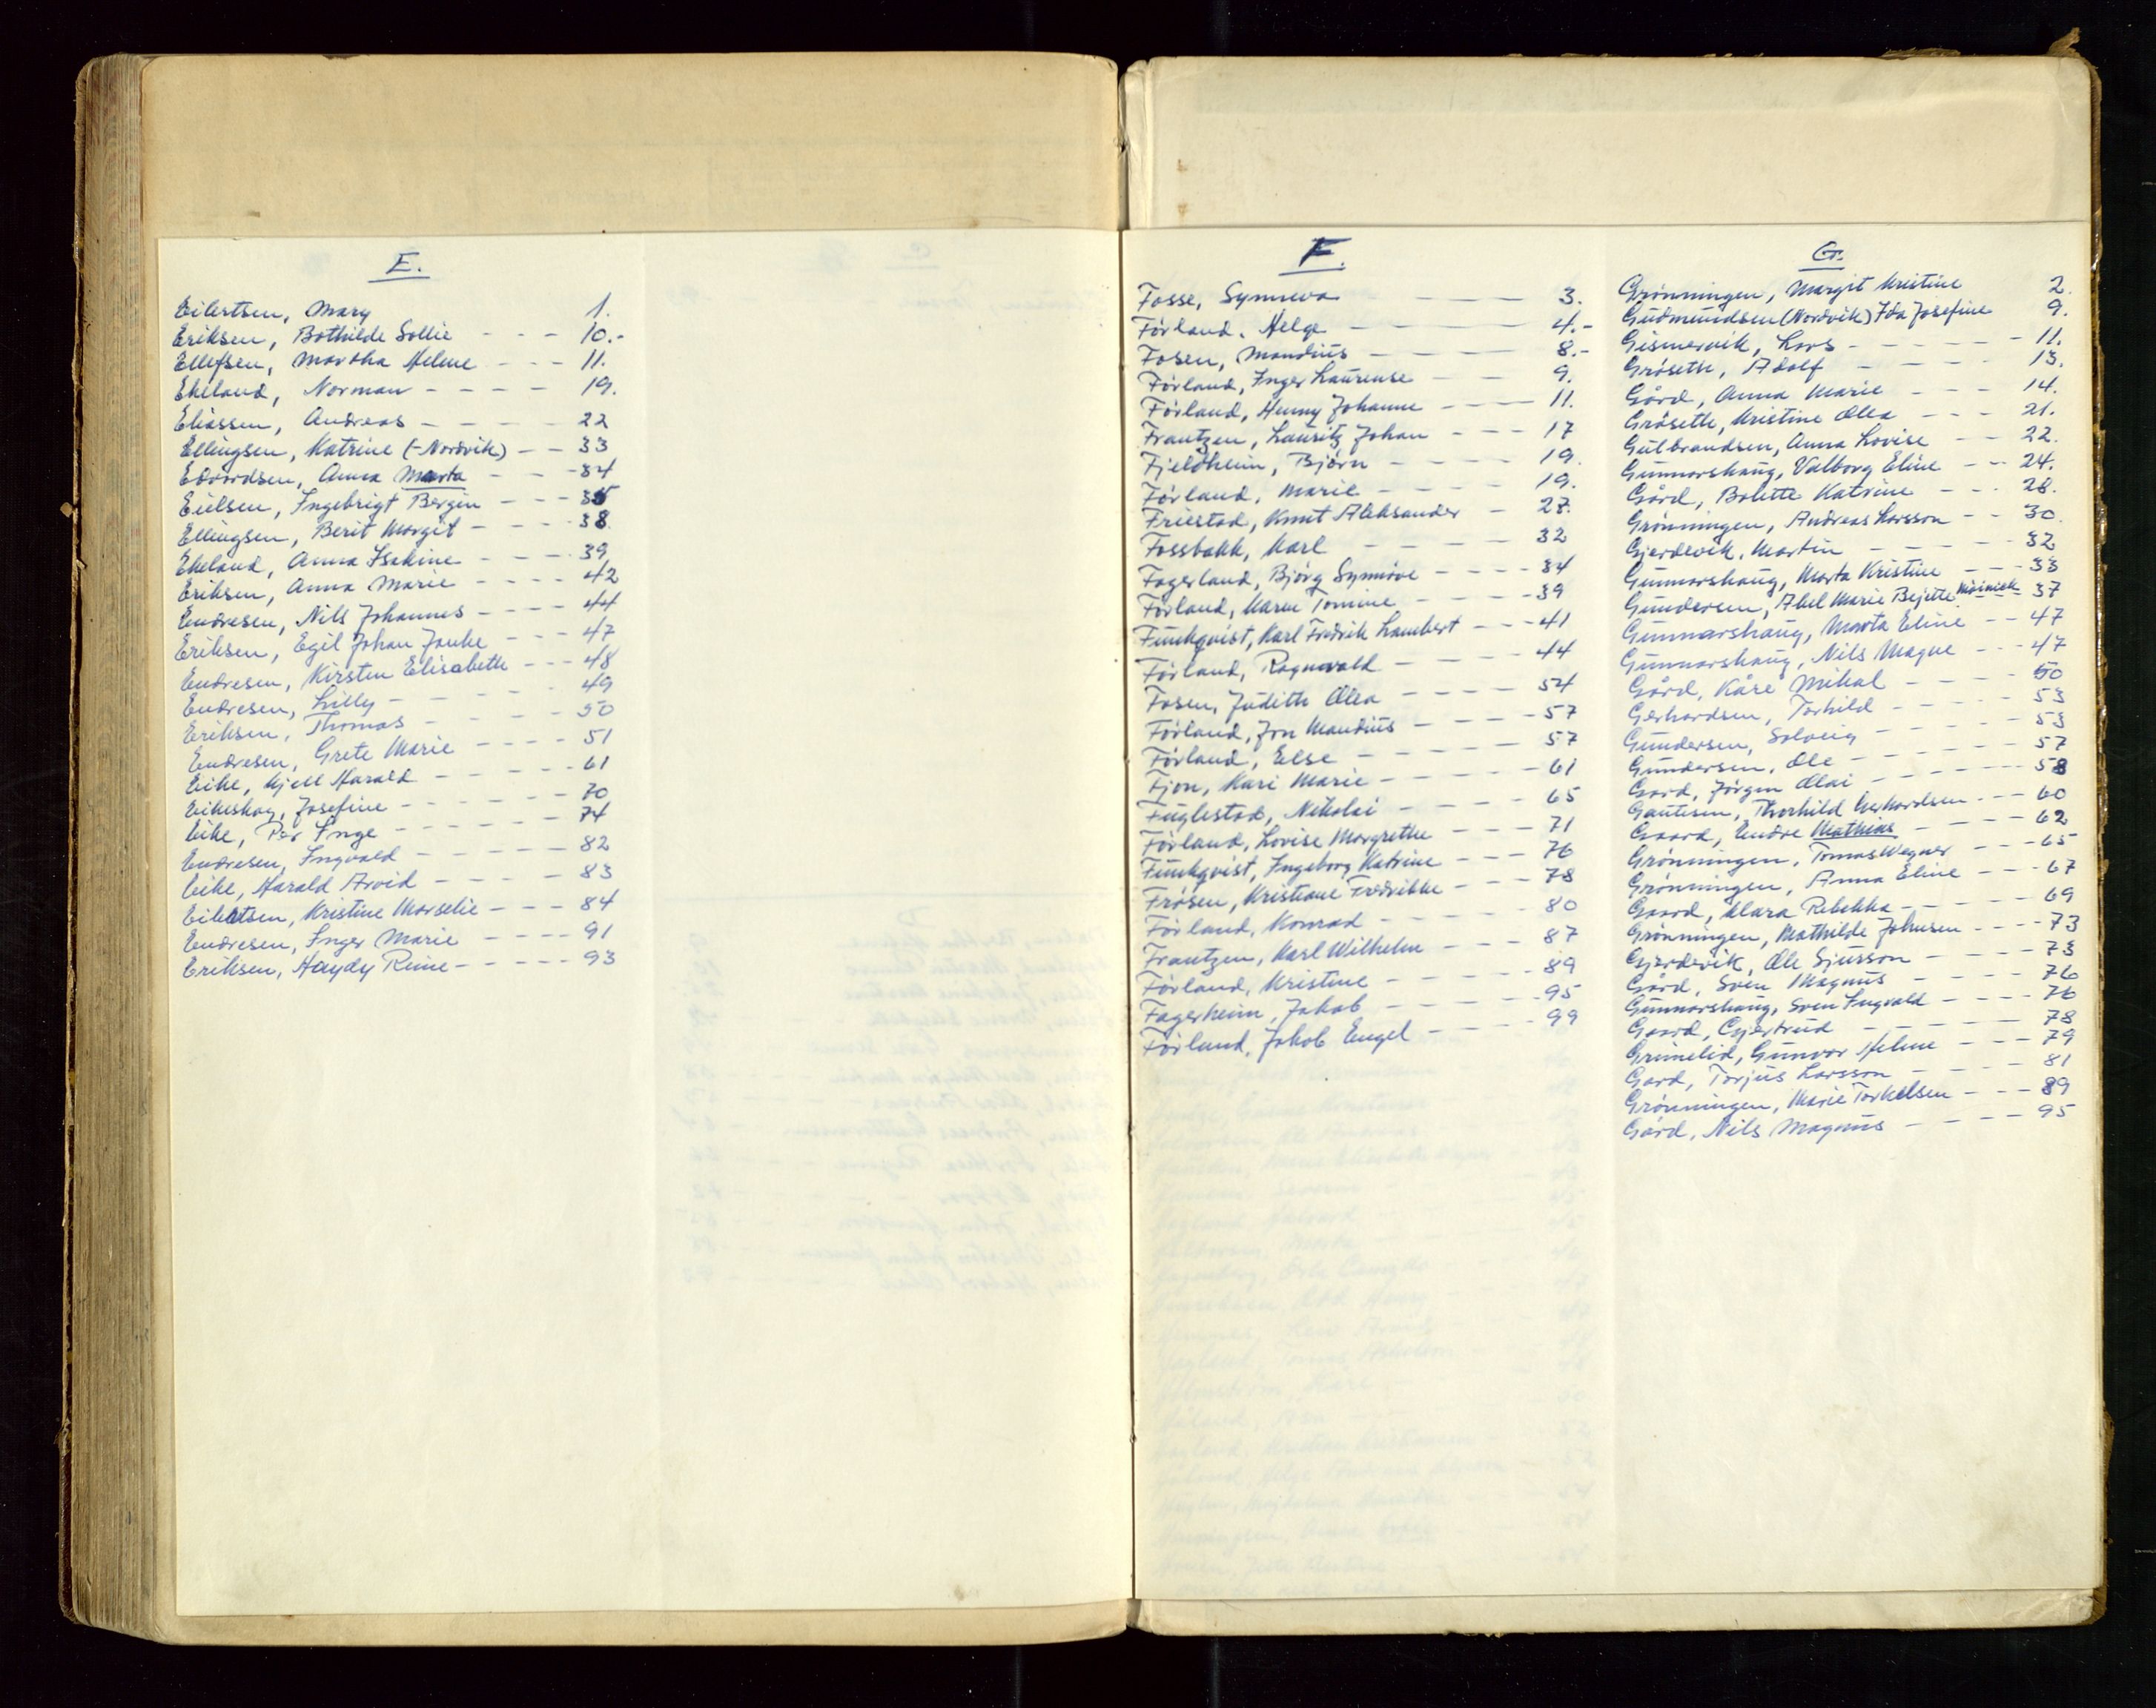 E.
Eilertsen, Mary 1.
Eriksen, Bothilde Sollie - - - 10.-
Ellefsen, Martha Helene - - - 11.
Ekeland, Norman - - - - 19.
Eliassen, Andreas - - - - 22
Ellingsen, Katrine (-Nordvik) - - 33
Edvardsen, Anna Marta - - - 34
Eielsen, Ingebrigt Bergin - - - 35
Ellingsen, Berit Margit - - - - 38.
Ekeland, Anna Isakine - - - - 39
Eriksen, Anna Marie - - - - 42
Endresen, Nils Johannes - - - - 44
Eriksen, Egil Johan Janke - - - 47
Endresen, Kirsten Elisabeth - - - 48
Endresen, Lilly - - - - 49
Eriksen, Thomas - - - - 50
Endresen, Grete Marie - - - - 51
Eike, Kjell Harald - - - - - 61
Eikeskog, Josefine - - - - - 70
Eike, Per Inge - - - - - 74
Endresen, Ingvald - - - - - 82
Eike, Harald Arvid - - - - 83
Eilertsen, Kristine Marselie - - - 84
Endresen, Inger Marie - - - - 91
Eriksen, Haydy Reine - - - - - 93
F.
Fosse, Synneva - - - 3.
Førland, Helge - - - - 4.-
Fosen, Mandius - - - - 8.-
Førland, Inger Laurense - - 9.
Førland, Henny Johanne - - - 11.
Frantzen, Lauritz Johan - - - 17
Fjeldheim, Bjørn - - - - 19.
Førland, Marie - - - - 19.
Friestad, Knut Aleksander - 27.
Fossbakk, Karl - - - - 32
Fagerland, Bjørg Synnøve - - - - 34
Førland, Karen Tomine - - - - 39
Funkqvist, Karl Fredrik Lambert - - - 41
Førland, Ragnvald - - - - 44
Fosen, Judith Olea - - - - 54
Førland, Jon Mandius - - - - 57
Førland, Else - - - - - 57
Fjon, Kari Marie - - - - 61
Fuglestad, Nikolai - - - - 65
Førland, Lovise Margrethe - - - 71
Funkqvist, Ingeborg Katrine - - - 76
Frøsen, Kristiane Fredrikke - - - 78
Førland, Konrad - - - - 80
Frantzen, Karl Wilhelm - - - - 87
Førland, Kristine - - - - - 89
Fagerheim, Jakob - - - - - 95
Førland, Jakob Engel - - - - 99
G.
Grønningen, Margit Kristine 2.
Gudmundsen (Nordvik) Ida Josefine 9.
Gismervik, Lars - - - - - 11.
Grøseth, Adolf - - - - 13.
Gård, Anna Marie - - - 14.
Grøseth, Kristine Olea - - - 21.
Gulbrandsen, Anna Lovise - - 22.
Gunnarshaug, Valborg Eline - - 24.
Gård, Bolette Katrine - - - 28.
Grønningen, Andreas Larsson - - 30
Gjerdevik, Martin - - - - 32
Gunnarshaug, Marta Kristine - - - 33
Gundersen, Abel Marie Bejette 37
Gunnarshaug, Marta Eline - - 47
Gunnarshaug, Nils Magne - - - 47
Gård, Kåre Mikal - - - - 50
Gerhardsen, Torhild - - - - 53
Gundersen, Solveig - - - - 53
Gundersen, Ole - - - - - 57
Gard, Jørgen Olai - - - - - 58
Gautesen, Thorhild Gerhardsen - - - 60
Gaard, Endre Mathias - - - - 62
Grønningen, Tomas Wegner - - - 65
Grønningen, Anna Eline - - - 67
Gaard, Klara Rebekka - - - - - 69
Grønningen, Mathilde Johnsen - - - - 73
Gjerdevik, Ole Sjursson - - - - 73
Gård, Sven Magnus - - - - - 76
Gunnarshaug, Sven Ingvald - - - - 76
Gaard, Gjertrud - - - - - 78
Grimelid, Gunvor Helene - - - 79
Gard, Torjus Larsson - - - - 81
Grønningen, Marie Torkelsen - - - 89
Gård, Nils Magnus - - - - 95